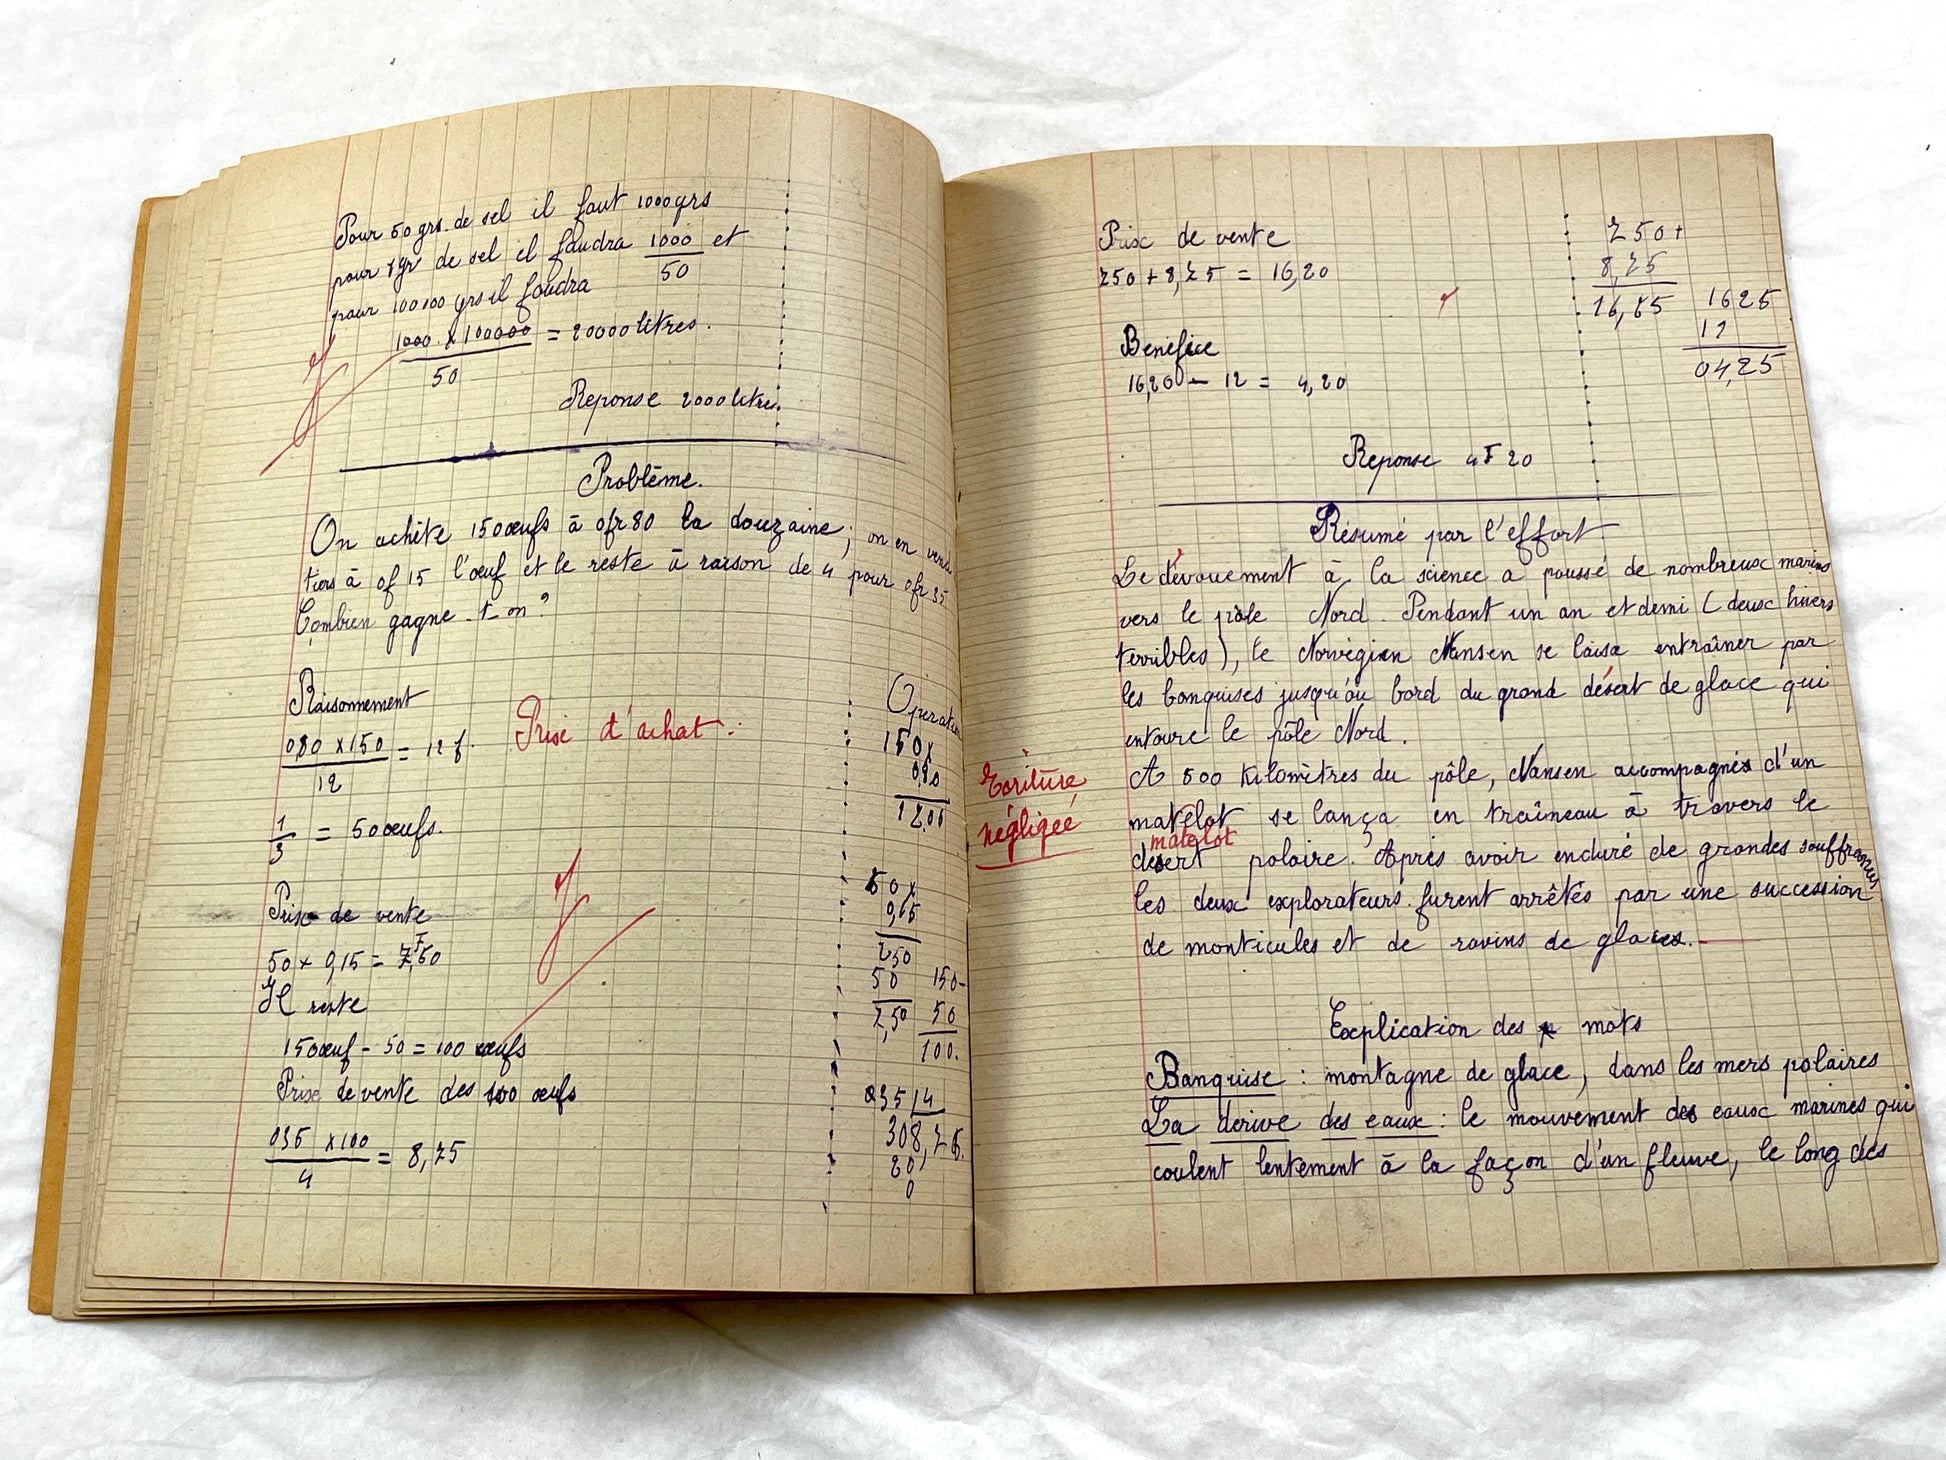 Pour 50 grs de sel il faut 1000 grs
pour 1 gr de sel il faudra 1000 et
50
pour 100000 grs il faudra
1000 x 100000 = 20000 litres.
50
Reponse 2000 litres.
Problème.
On achète 150 œufs à 0fr80 la douzaine; on en vend
tiers à 0f 15 l'œuf et le reste à raison de 4 pour 0fr 35
Combien gagne-t-on?
Raisonnement
Operation
080 x 150 = 12 f.
12
Prix d'achat :
150 x
080
12,00
1 = 50 œufs.
3
50 x
0,15
250
50
7,50
Prix de vente
50 x 0,15 = 7,50
F
Il reste
150 œuf - 50 = 100 œufs
150 -
50
100.
Prix de vente des 100 œufs
035 x 100 = 8,75
4
035 4
308,75
20
0
Prix de vente
750 + 8,75 = 16,20
750 +
8,75
16,25
Benefice
16,20 - 12 = 4,20
1625
12
04,25
Reponse 4F 20
Résumé par l'effort
Le dévouement à la science a poussé de nombreux marins
vers le pôle Nord. Pendant un an et demi (deux hivers
terribles), le Norvégien Nansen se laisa entraîner par
les banquises jusqu'au bord du grand désert de glace qui
entoure le pôle Nord.
A 500 Kilomètres du pôle, Nansen accompagnés d'un
Ecriture
négligée
matelot se lança en traîneau à travers le
matelot
desert polaire. Après avoir enduré de grandes souffrances
les deux explorateurs furent arrêtés par une succession
de monticules et de ravins de glaces.
Explication des mots
Banquise : montagne de glace, dans les mers polaires
La derive des eaux : le mouvement des eaux marines qui
coulent lentement à la façon d'un fleuve, le long des